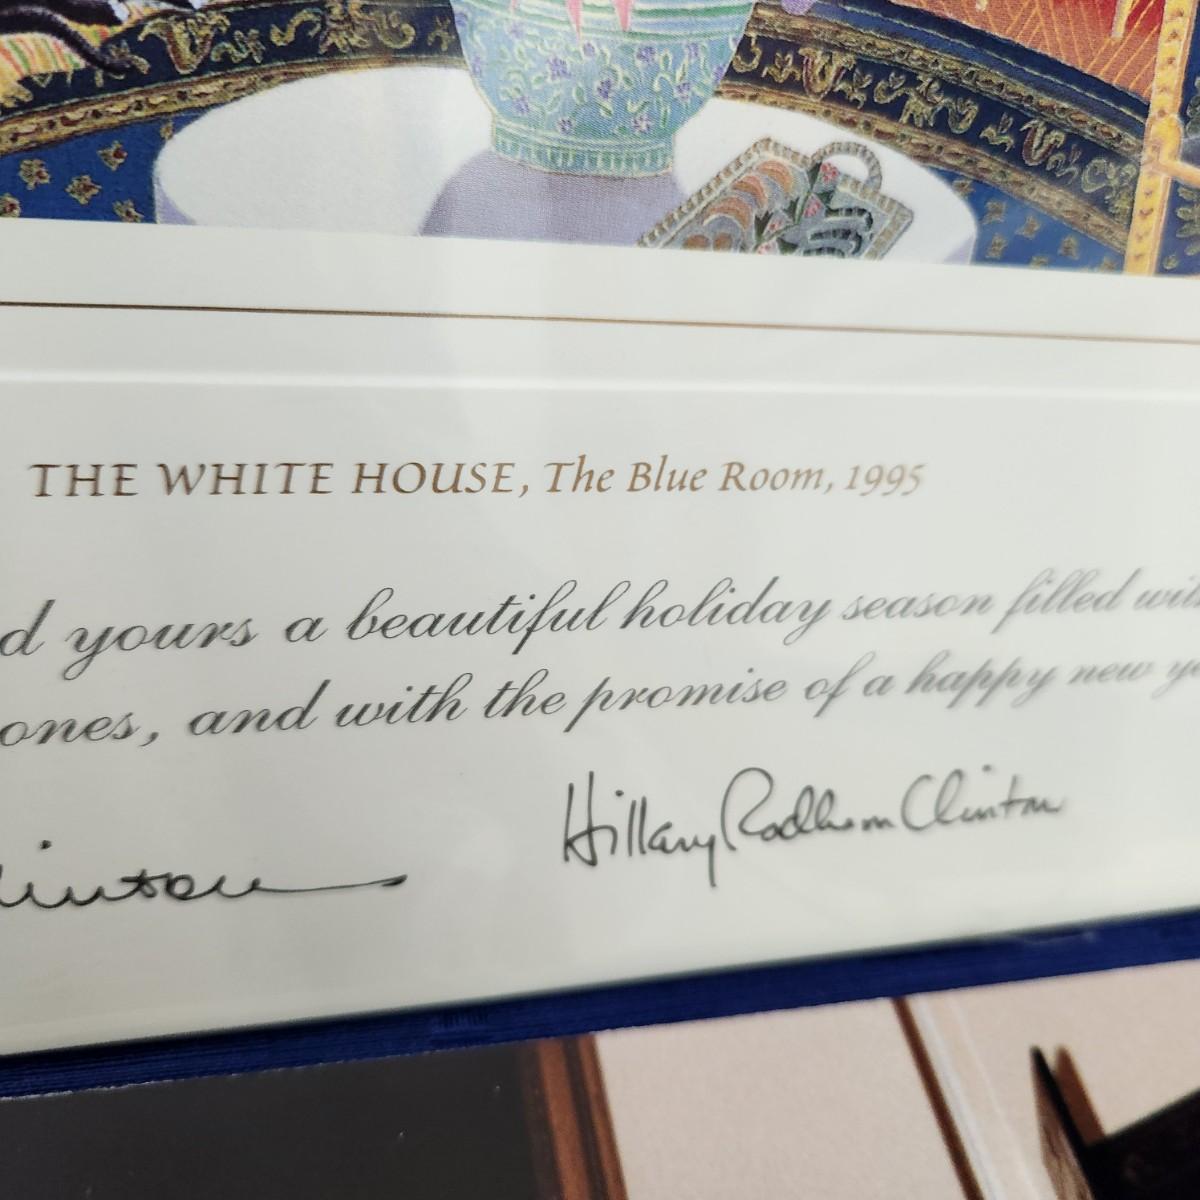 THE WHITE HOUSE, The Blue Room, 1995
d yours a beautiful holiday season filled with
ones, and with the promise of a happy new ye
linton Hillary Rodham Clinton